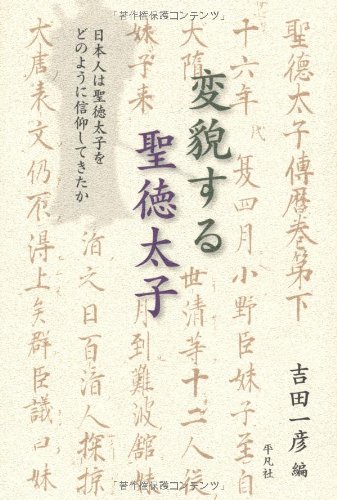 「著作権保護コンテンツ」
変貌する
聖徳太子
日本人は聖徳太子を
どのように信仰してきたか
吉田一彦 編
平凡社
聖德太子傳曆卷第下
十六年 代 夏四月小野臣妹子至自
大隋
世清等十二人
妹子来 月到難波舘妹
大唐表文仍不得上矣群臣議曰妹
沿之日百済人探掠
「著作権保護コンテンツ」